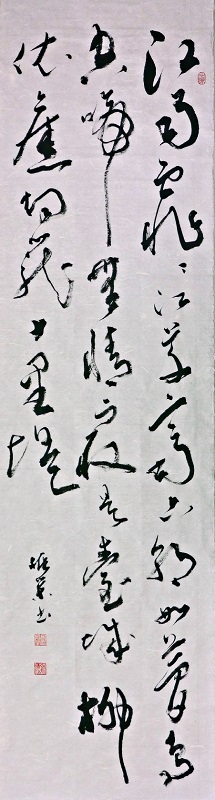 江雨霏〻江草齊六朝如夢鳥
空啼無情最是臺城柳
依舊烟籠十里堤